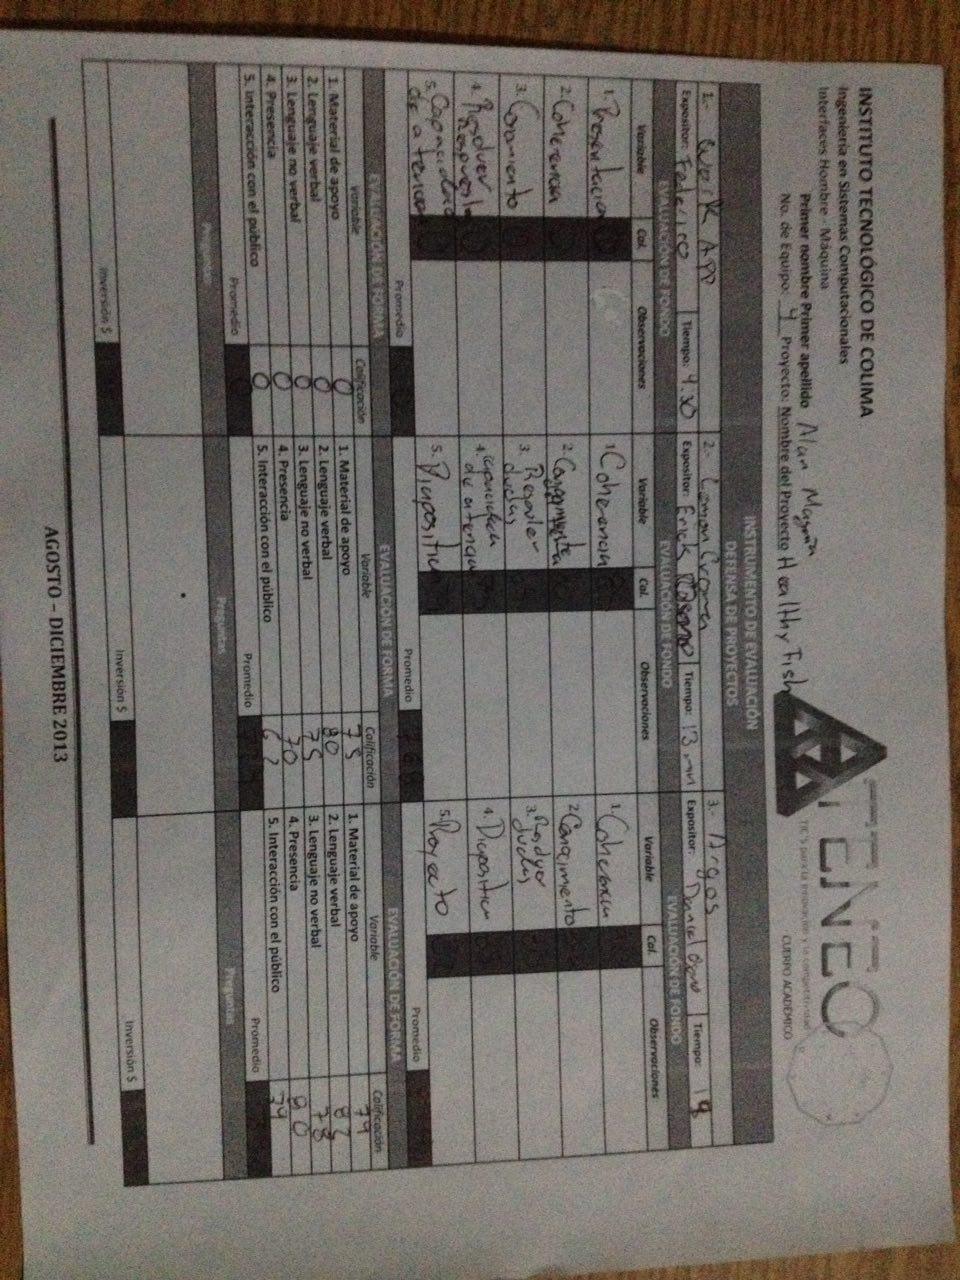 INSTITUTO TECNOLÓGICO DE COLIMA
Ingeniería en Sistemas Computacionales
Interfaces Hombre - Máquina
Primer nombre Primer apellido Alan Magaña
No. de Equipo: 4 Proyecto: Nombre del Proyecto Healthy Fish
ATENEO
TIC'S para la innovación y la competitividad
CUERPO ACADÉMICO
INSTRUMENTO DE EVALUACIÓN
DEFENSA DE PROYECTOS
1.- Work App
Expositor: Federico Tiempo: 9.30
EVALUACIÓN DE FONDO
Variable Cal. Observaciones
1. Presentacion
2. Coherencia
3. Conomiento
4. Resolver
5. Capacidad
de atencion
Promedio
EVALUACIÓN DE FORMA
Variable Calificación
1. Material de apoyo 0
2. Lenguaje verbal 0
3. Lenguaje no verbal 0
4. Presencia 0
5. Interacción con el público 0
Promedio
Preguntas
Inversión $
2.- Lemon
Expositor: Erick Tiempo: 13 mn
EVALUACIÓN DE FONDO
Variable Cal. Observaciones
1. Coherencia
2.
3. Resolver
dudas
4. capacidad
de atencion
5. Diapositiva
Promedio
EVALUACIÓN DE FORMA
Variable Calificación
1. Material de apoyo 75
2. Lenguaje verbal 80
3. Lenguaje no verbal 75
4. Presencia 70
5. Interacción con el público 62
Promedio
Preguntas
Inversión $
3.- Argos
Expositor: Daniel Tiempo: 18
EVALUACIÓN DE FONDO
Variable Cal. Observaciones
1. Coherencia
2. Conocimiento
3. dudas
4. Diapositiva
5. Proyecto
Promedio
EVALUACIÓN DE FORMA
Variable Calificación
1. Material de apoyo 79
2. Lenguaje verbal
3. Lenguaje no verbal 78
4. Presencia 80
5. Interacción con el público 79
Promedio
Preguntas
Inversión $
AGOSTO – DICIEMBRE 2013